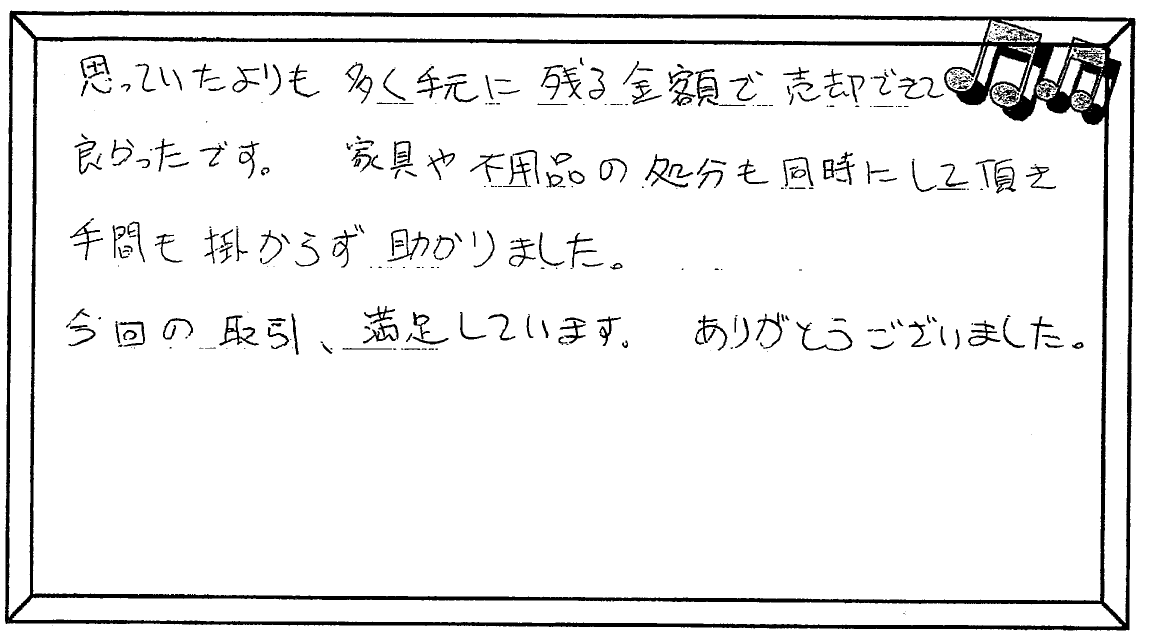 思っていたよりも 多く手元に 残る金額で 売却できて
良かったです。 家具や不用品の処分も同時にして頂き
手間も掛からず助かりました。
今回の取引、満足しています。 ありがとうございました。